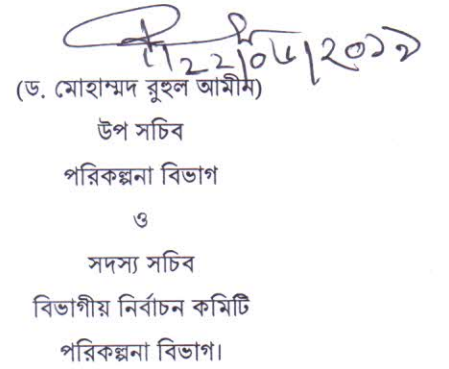 (ড. মোহাম্মদ রুহুল আমীন)
উপ সচিব
পরিকল্পনা বিভাগ
ও
সদস্য সচিব
বিভাগীয় নির্বাচন কমিটি
পরিকল্পনা বিভাগ।